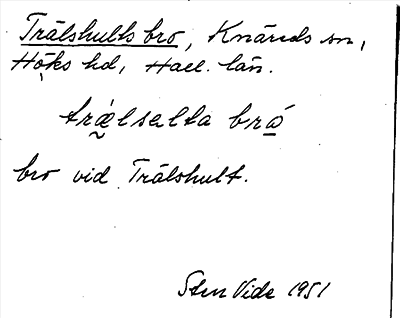 Trälshults bro, Knäreds sn,
Höks hd, Hall. län.
trǽlsalta brǫ́
bro vid Trälshult.
Sten Vide 1951